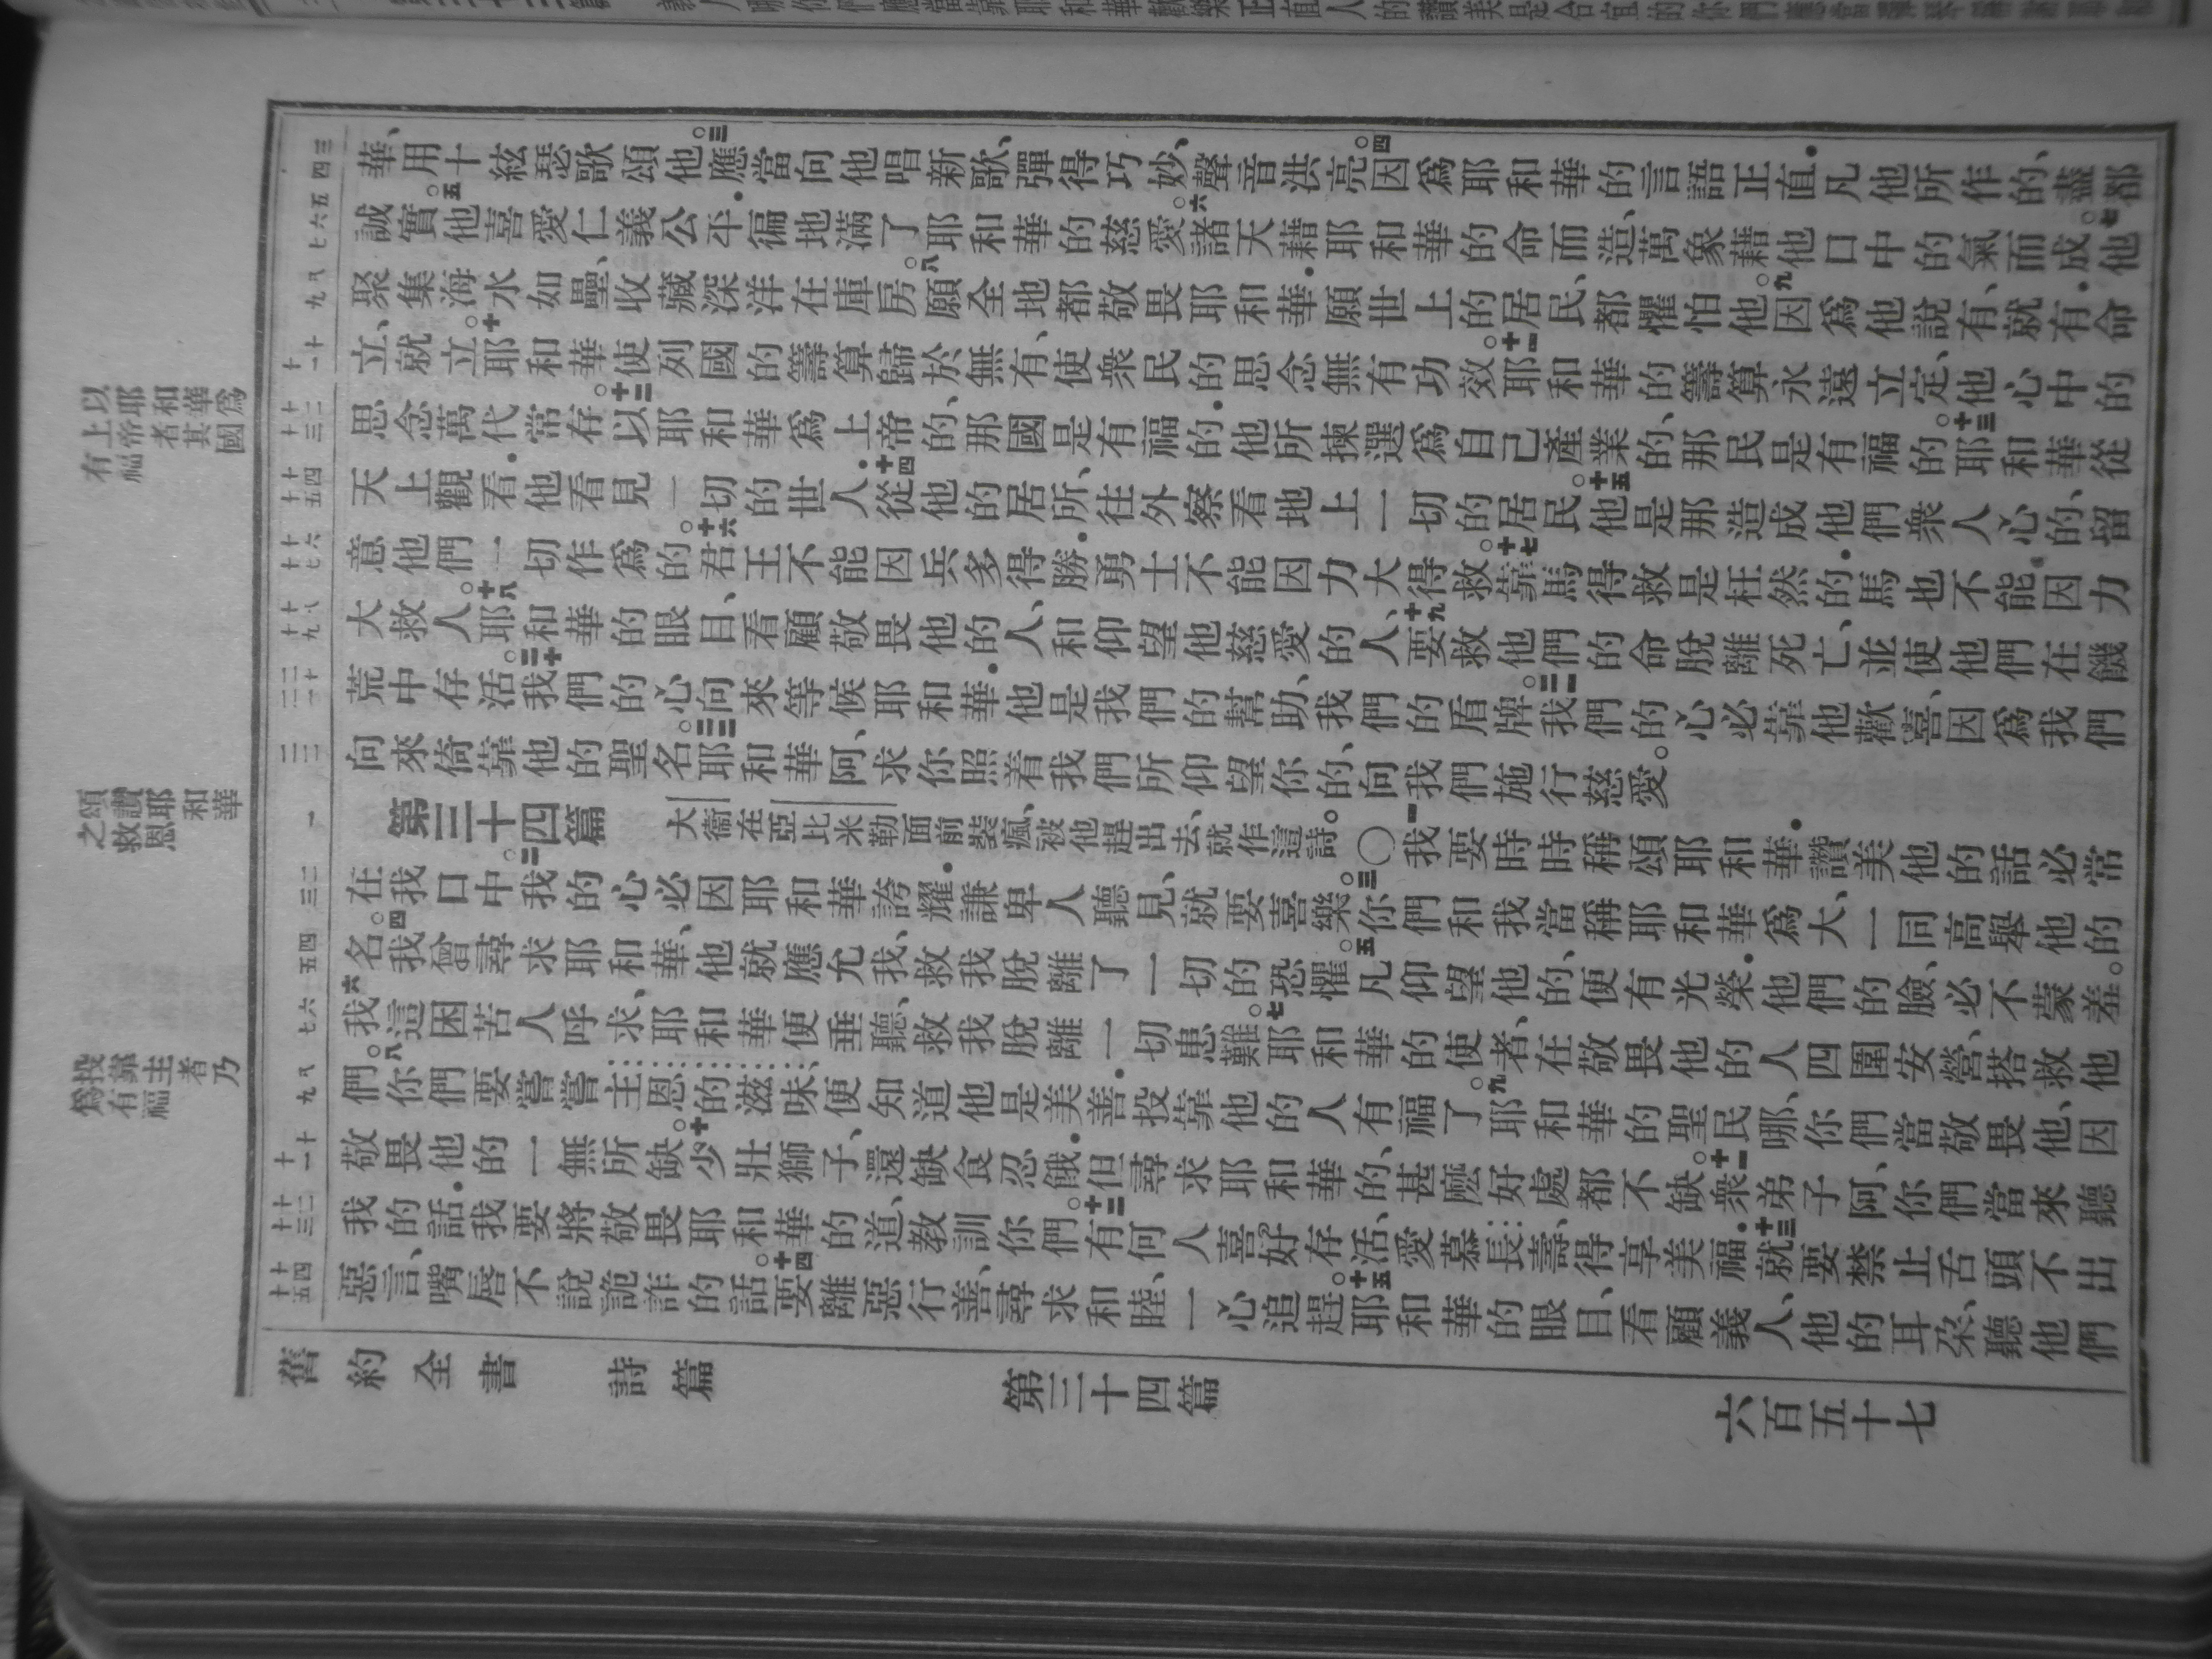 以耶和華爲
上帝者其國
有福
頌讚耶和華
之救恩
投靠主者乃
爲有福
三四
華、用十絃瑟歌頌他。三應當向他唱新歌、彈得巧妙、聲音洪亮。四因爲耶和華的言語正直．凡他所作的、盡都
五六七
誠實。五他喜愛仁義公平．徧地滿了耶和華的慈愛。六諸天藉耶和華的命而造、萬象藉他口中的氣而成。七他
八九
聚集海水如壘、收藏深洋在庫房。八願全地都敬畏耶和華．願世上的居民、都懼怕他。九因爲他說有、就有．命
十十一
立、就立。十耶和華使列國的籌算歸於無有、使衆民的思念無有功效。十一耶和華的籌算永遠立定、他心中的
十二十三
思念萬代常存。十二以耶和華爲上帝的、那國是有福的．他所揀選爲自己產業的、那民是有福的。十三耶和華從
十四十五
天上觀看．他看見一切的世人．十四從他的居所、往外察看地上一切的居民。十五他是那造成他們衆人心的、留
十六十七
意他們一切作爲的。十六君王不能因兵多得勝．勇士不能因力大得救。十七靠馬得救是枉然的．馬也不能因力
十八十九
大救人。十八耶和華的眼目、看顧敬畏他的人、和仰望他慈愛的人、十九要救他們的命脫離死亡、並使他們在饑
二十二一
荒中存活。二十我們的心向來等候耶和華．他是我們的幫助、我們的盾牌。二一我們的心必靠他歡喜、因爲我們
二二
向來倚靠他的聖名。二二耶和華阿、求你照着我們所仰望你的、向我們施行慈愛。
一
第三十四篇 大衞在亞比米勒面前裝瘋、被他趕出去、就作這詩。〇一我要時時稱頌耶和華．讚美他的話必常
二三
在我口中。二我的心必因耶和華誇耀．謙卑人聽見、就要喜樂。三你們和我當稱耶和華爲大、一同高舉他的
四五
名。四我曾尋求耶和華、他就應允我、救我脫離了一切的恐懼。五凡仰望他的、便有光榮．他們的臉、必不蒙羞。
六七
六我這困苦人呼求、耶和華便垂聽、救我脫離一切患難。七耶和華的使者、在敬畏他的人四圍安營、搭救他
八九
們。八你們要嘗嘗主恩的滋味、便知道他是美善．投靠他的人有福了。九耶和華的聖民哪、你們當敬畏他、因
十十一
敬畏他的一無所缺。十少壯獅子、還缺食忍餓．但尋求耶和華的、甚麽好處都不缺。十一衆弟子阿、你們當來聽
十二十三
我的話．我要將敬畏耶和華的道、教訓你們。十二有何人喜好存活、愛慕長壽、得享美福．十三就要禁止舌頭不出
十四十五
惡言、嘴唇不說詭詐的話。十四要離惡行善、尋求和睦、一心追趕。十五耶和華的眼目、看顧義人、他的耳朶、聽他們
舊約全書 詩篇 第三十四篇 六百五十七